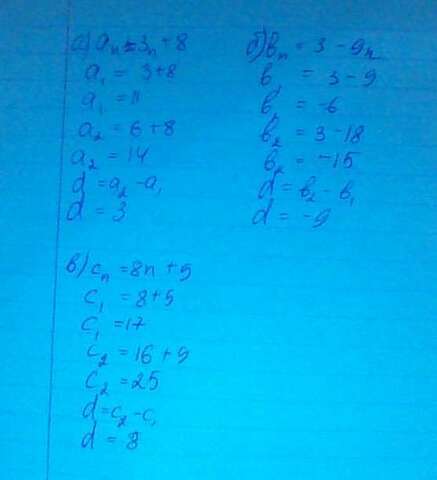 а) aₙ = 3ₙ + 8
a₁ = 3+8
a₁ = 11
a₂ = 6+8
a₂ = 14
d = a₂ - a₁
d = 3
б) вₙ = 3 - 9ₙ
в₁ = 3 - 9
в₁ = -6
в₂ = 3 - 18
в₂ = -15
d = в₂ - в₁
d = -9
в) cₙ = 8n + 9
c₁ = 8+9
c₁ = 17
c₂ = 16 + 9
c₂ = 25
d = c₂ - c₁
d = 8